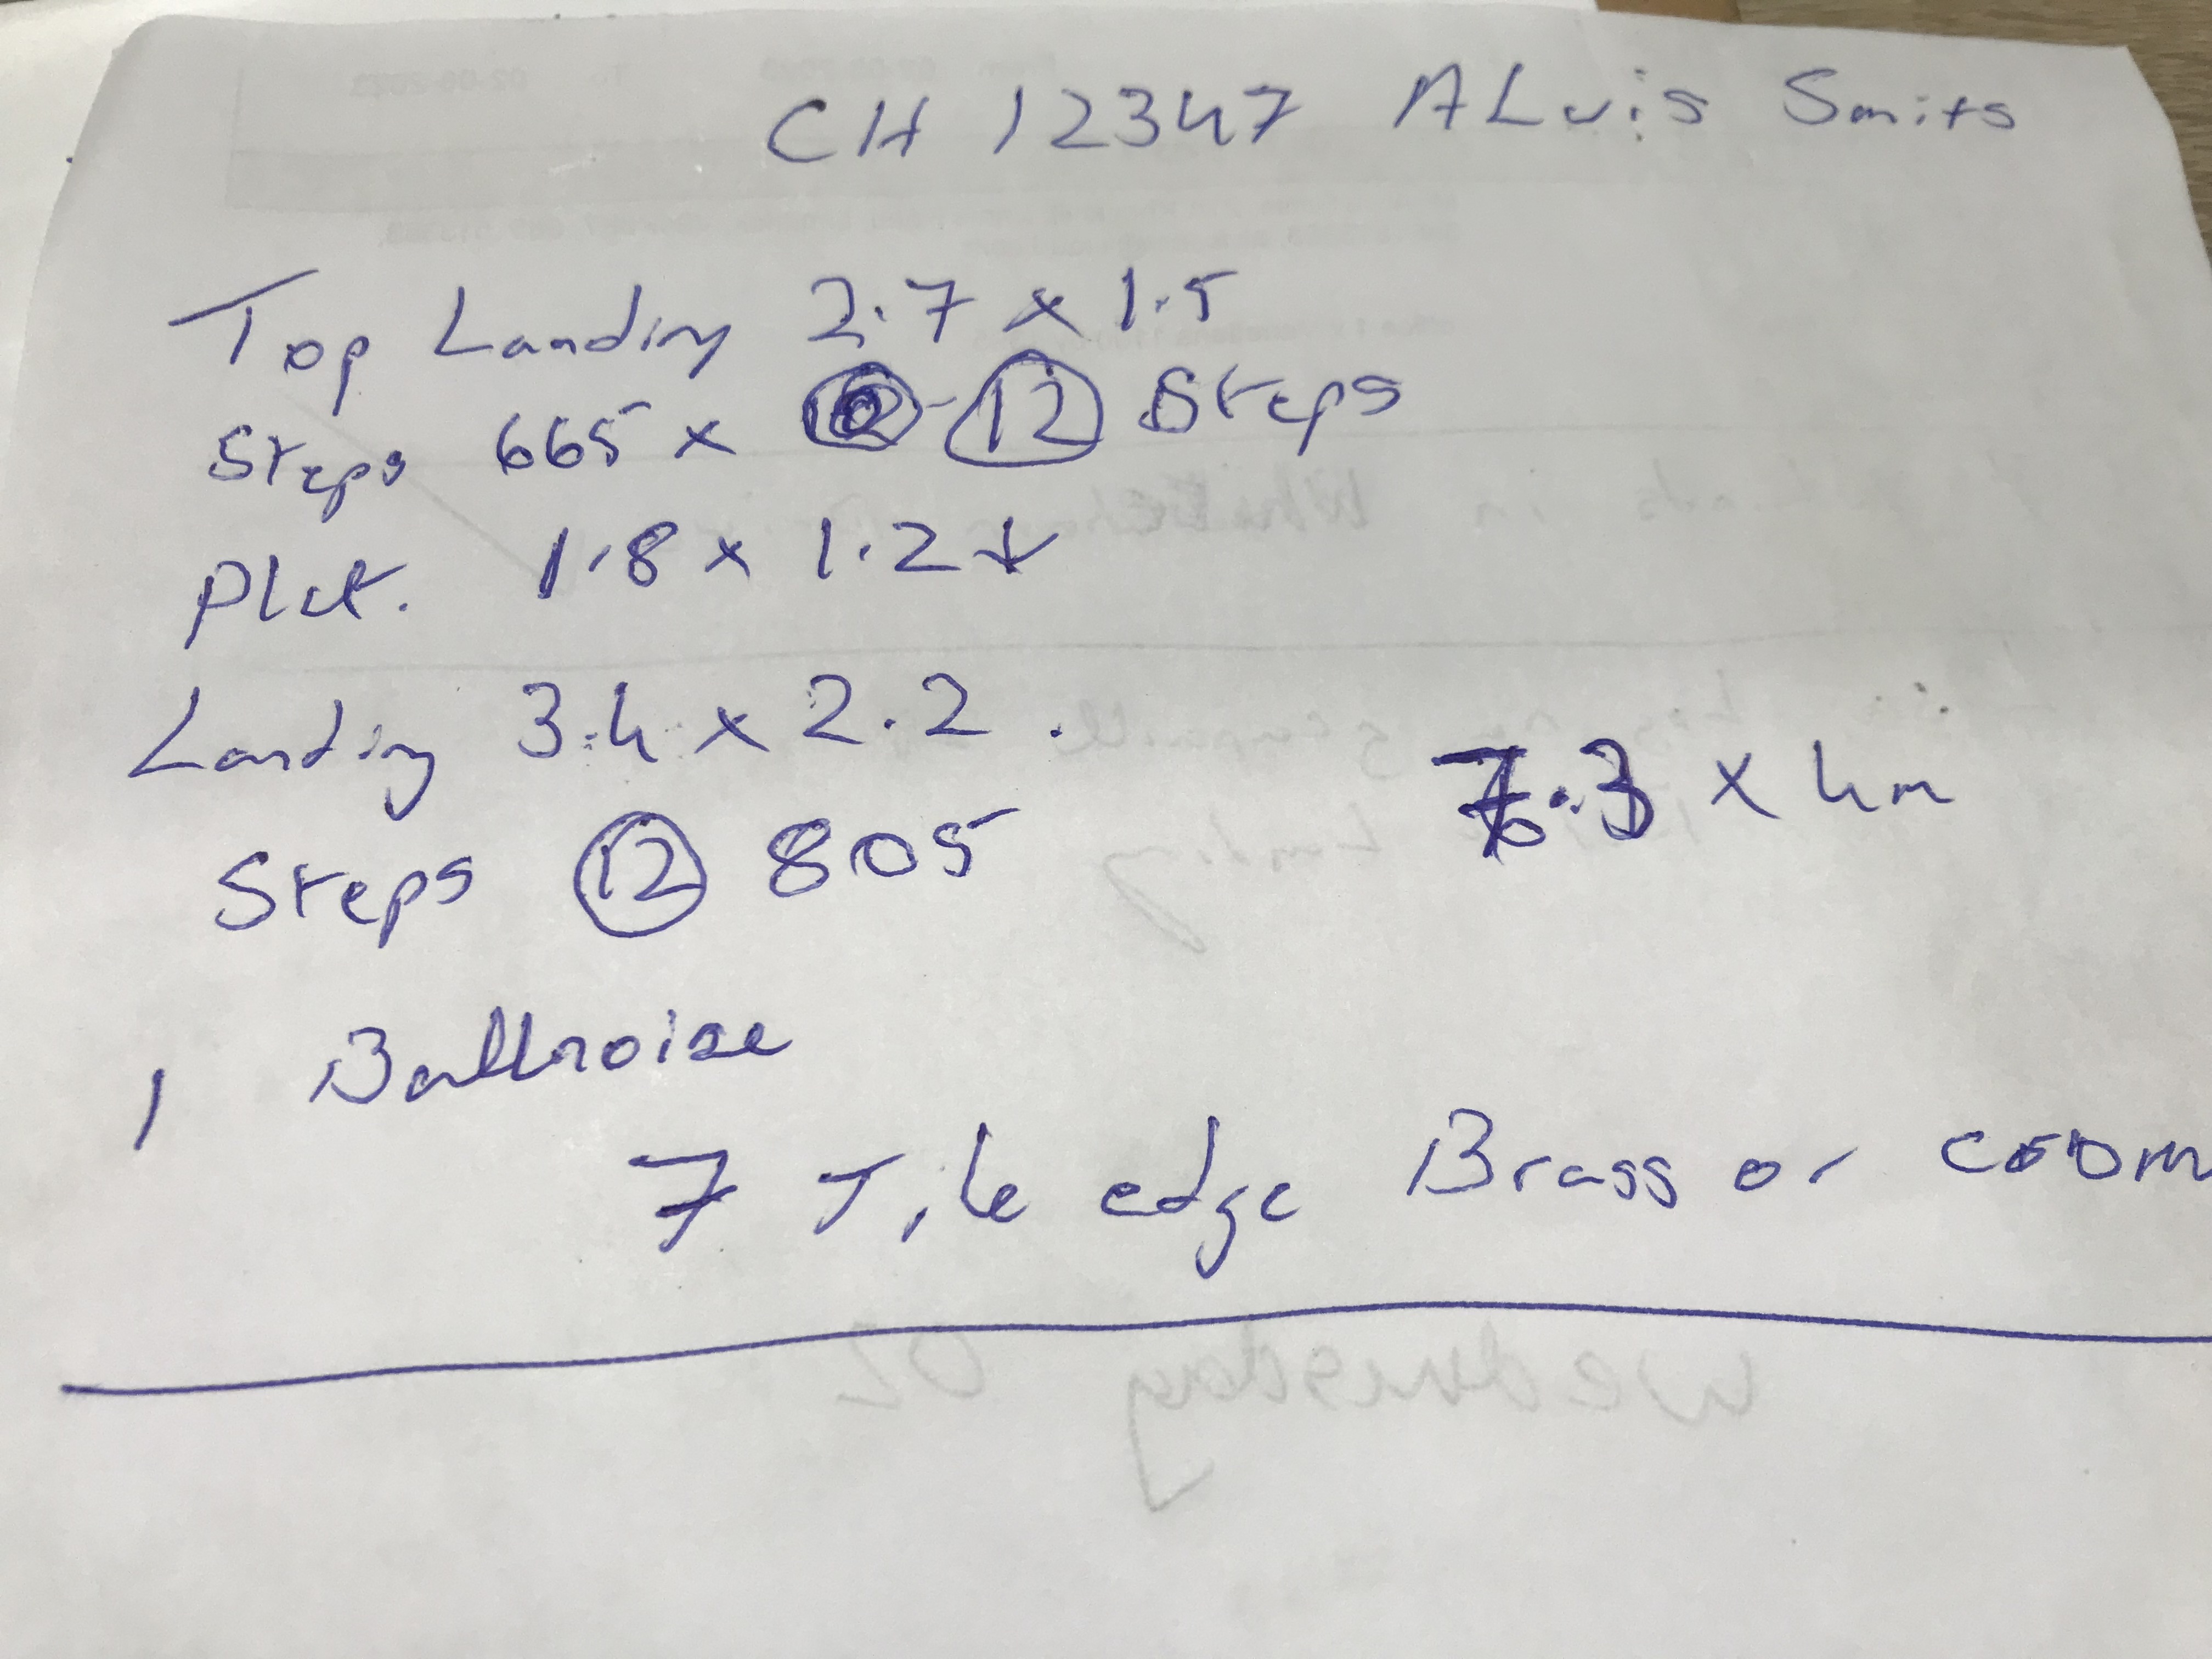 CH 12347 ALvis Smits
Top Landing 2.7 x 1.5
Steps 665 x 12 Steps
Plat. 1.8 x 1.2 ↓
Landing 3.4 x 2.2.
x 4m
Steps 12 805
1 Ballnoise
7 Tile edge Brass or
wednesday 02